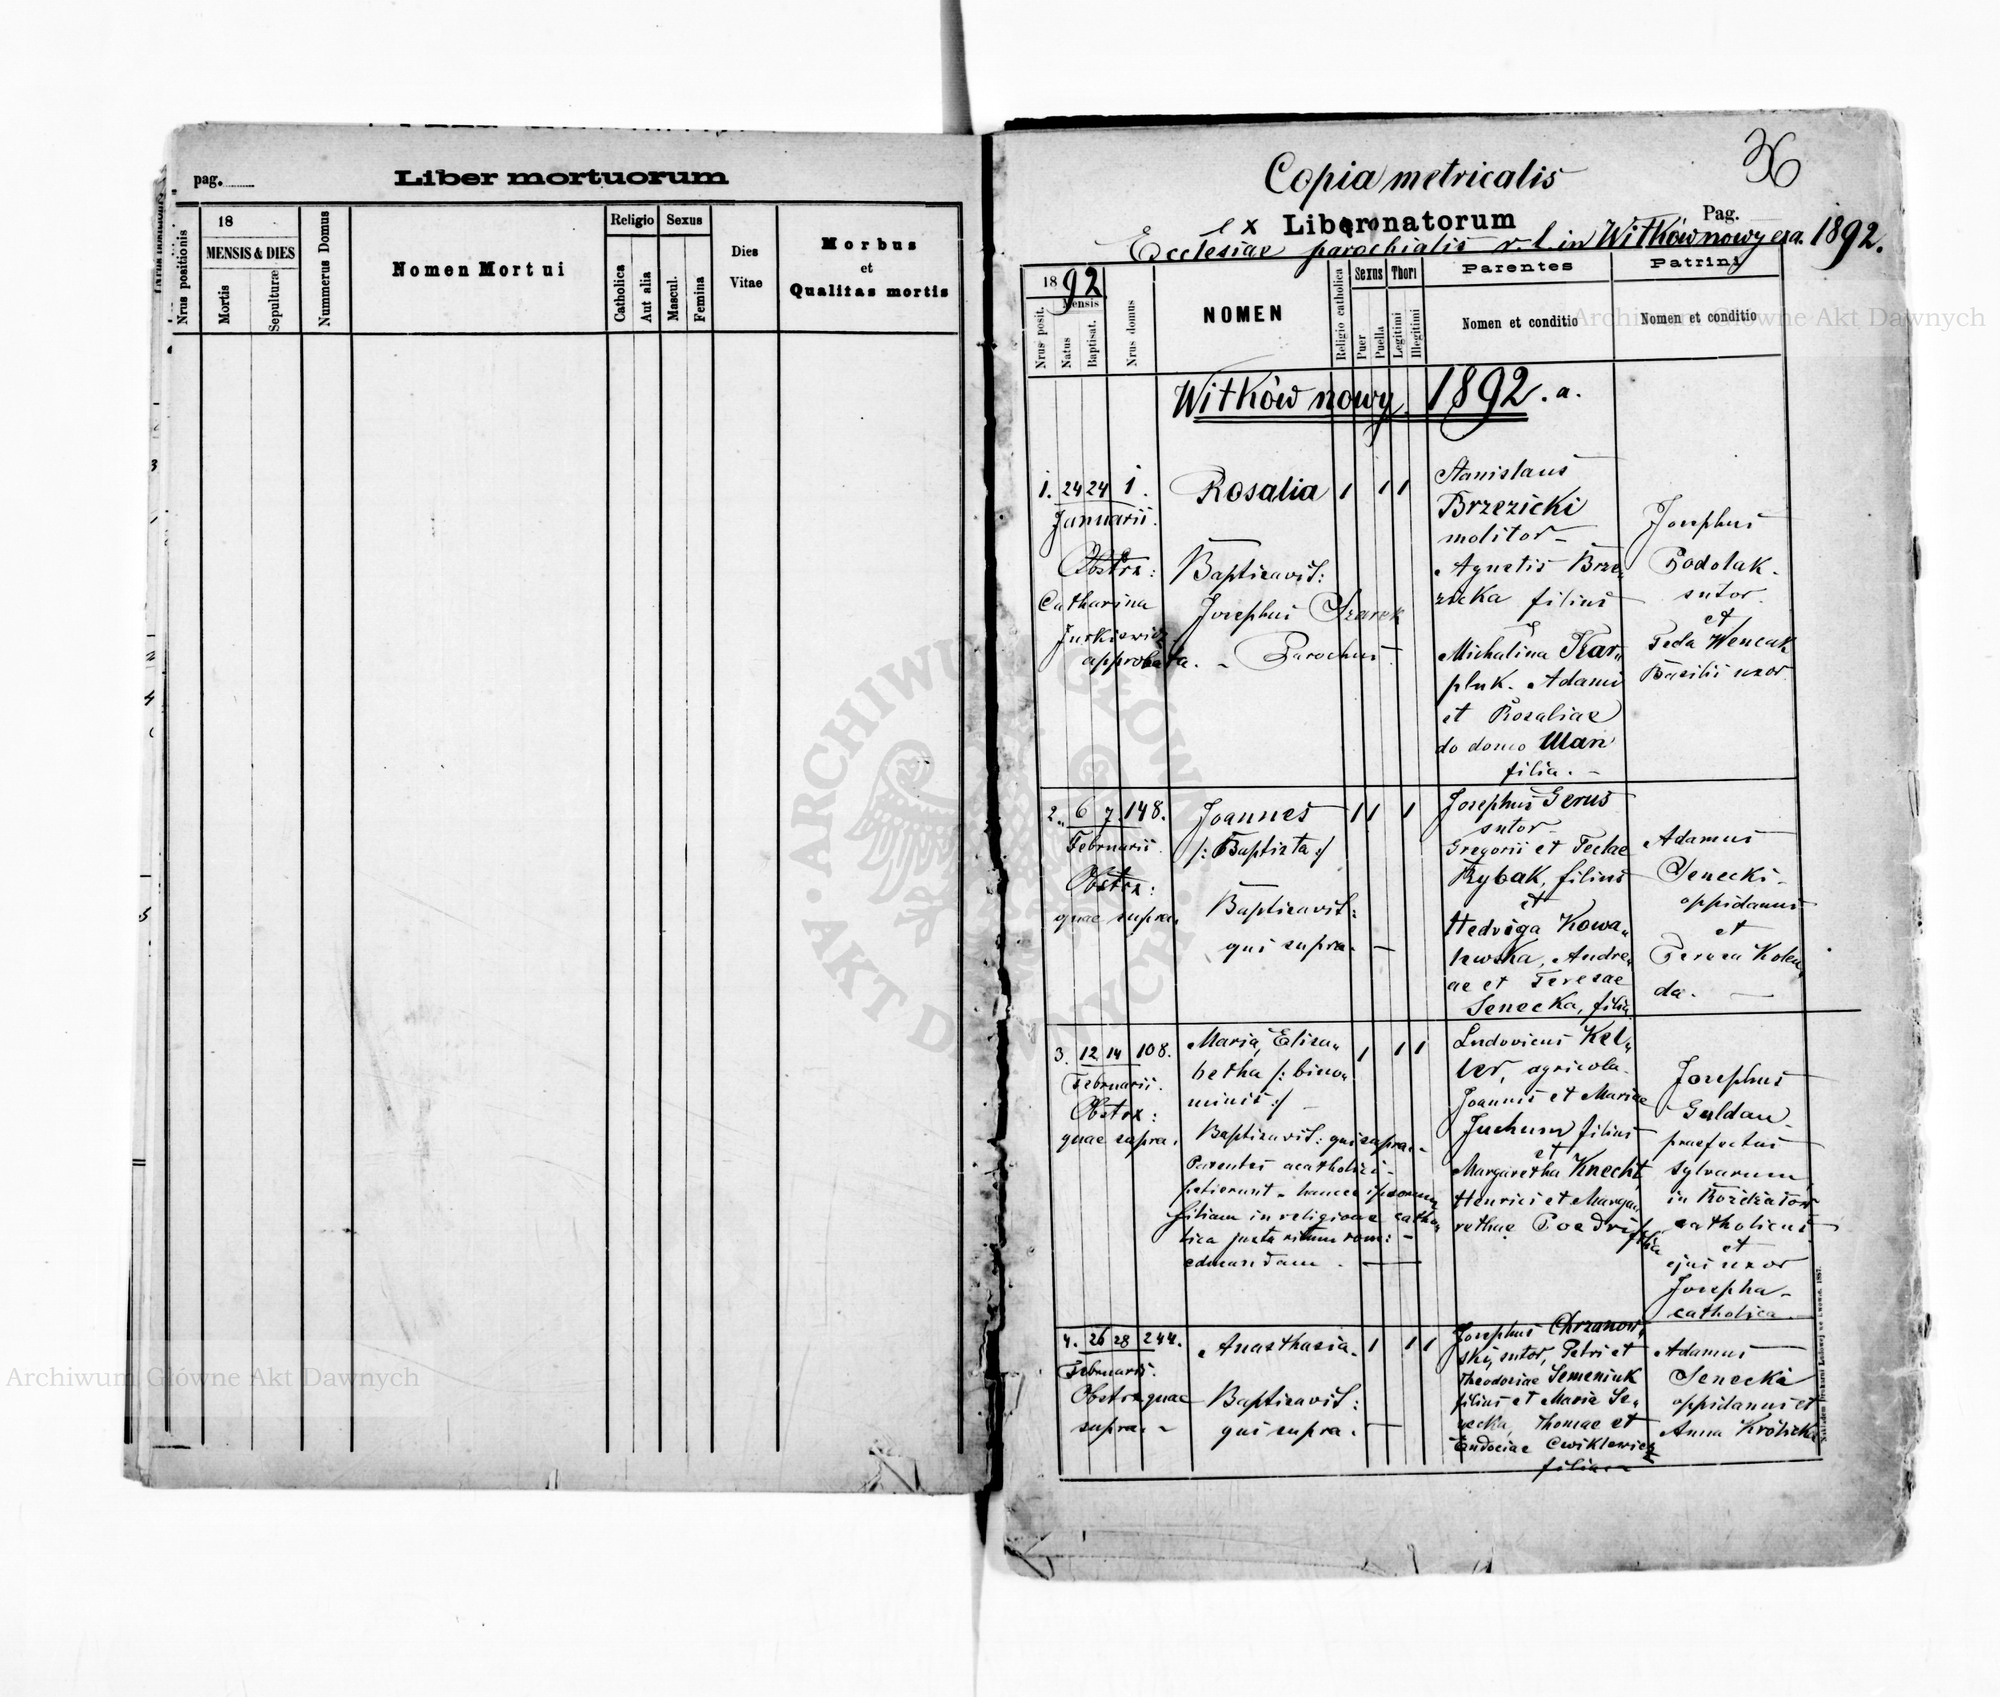 pag.
Liber mortuorum
Nrus positionis
18
MENSIS & DIES
Mortis
Sepulturæ
Nummerus Domus
Nomen Mortui
Religio
Catholica
Aut alia
Sexus
Mascul.
Femina
Dies
Vitae
Morbus
et
Qualitas mortis
36
Copia metricalis
Pag.
ex Liber natorum
Ecclesiae parochialis r. l. in Witków nowy a. 1892.
Nrus posit.
1892
Mensis
Natus
Baptisat.
Nrus domus
NOMEN
Religio catholica
Sexus
Puer
Puella
Thori
Legitimi
Illegitimi
Parentes
Nomen et conditio
Patrini
Nomen et conditio
Witków nowy 1892. a.
1. 24 24 1.
Januarii.
Obstrx:
Catharina
Jurkiewicz
approbata.
Rosalia
Baptizavit:
Josephus Szarek
Parochus.
1 1 1
Stanislaus
Brzezicki
molitor
Agnetis Brze„
zicka filius
et
Michalina Kar„
pluk. Adami
et Rosaliae
do domo Wan
filia.
Josephus
Podolak.
sutor.
et
Teda Wencak
Basilii uxor
2. 6 7 148.
Februarii
Obstrx:
quae supra.
Joannes
/: Baptista :/
Baptizavit:
qui supra.
1 1 1
Josephus Gerus
sutor
Gregorii et Teclae
Rybak, filius
et
Hedviga Kowa„
lewska, Andre„
ae et Teresae
Senecka, filia
Adamus
Senecki
oppidanus
et
Teresa Kolen„
da.
3. 12 14 108.
Februarii.
Obstrx:
quae supra.
Maria, Elisa„
betha /: bino„
minis :/
Baptizavit: qui supra.
Parentes acatholici
petierunt hancce ipsorum
filiam in religione catho„
lica juxta ritum rom:
educandam.
1 1 1
Ludovicus Kel„
ler, agricola
Joannis et Mariae
Juchum filius
et
Margaretha Knecht,
Henrici et Marga„
rethae filia
Josephus
Guldan
praefectus
sylvarum
in
catholicus
et
ejus uxor
Josepha
catholica.
4. 26 28 244.
Februarii.
Obstrx quae
supra.
Anasthasia.
Baptizavit:
qui supra.
1 1 1
Josephus Chrzanow„
ski, sutor, Petri et
Theodoziae Semeniuk
filius et Maria Se„
necka, Thomae et
Eudociae Cwiklewicz
filia
Adamus
Senecki
oppidanus et
Anna Królicka
ARCHIWUM GŁÓWNE AKT DAWNYCH
Archiwum Główne Akt Dawnych
Archiwum Główne Akt Dawnych